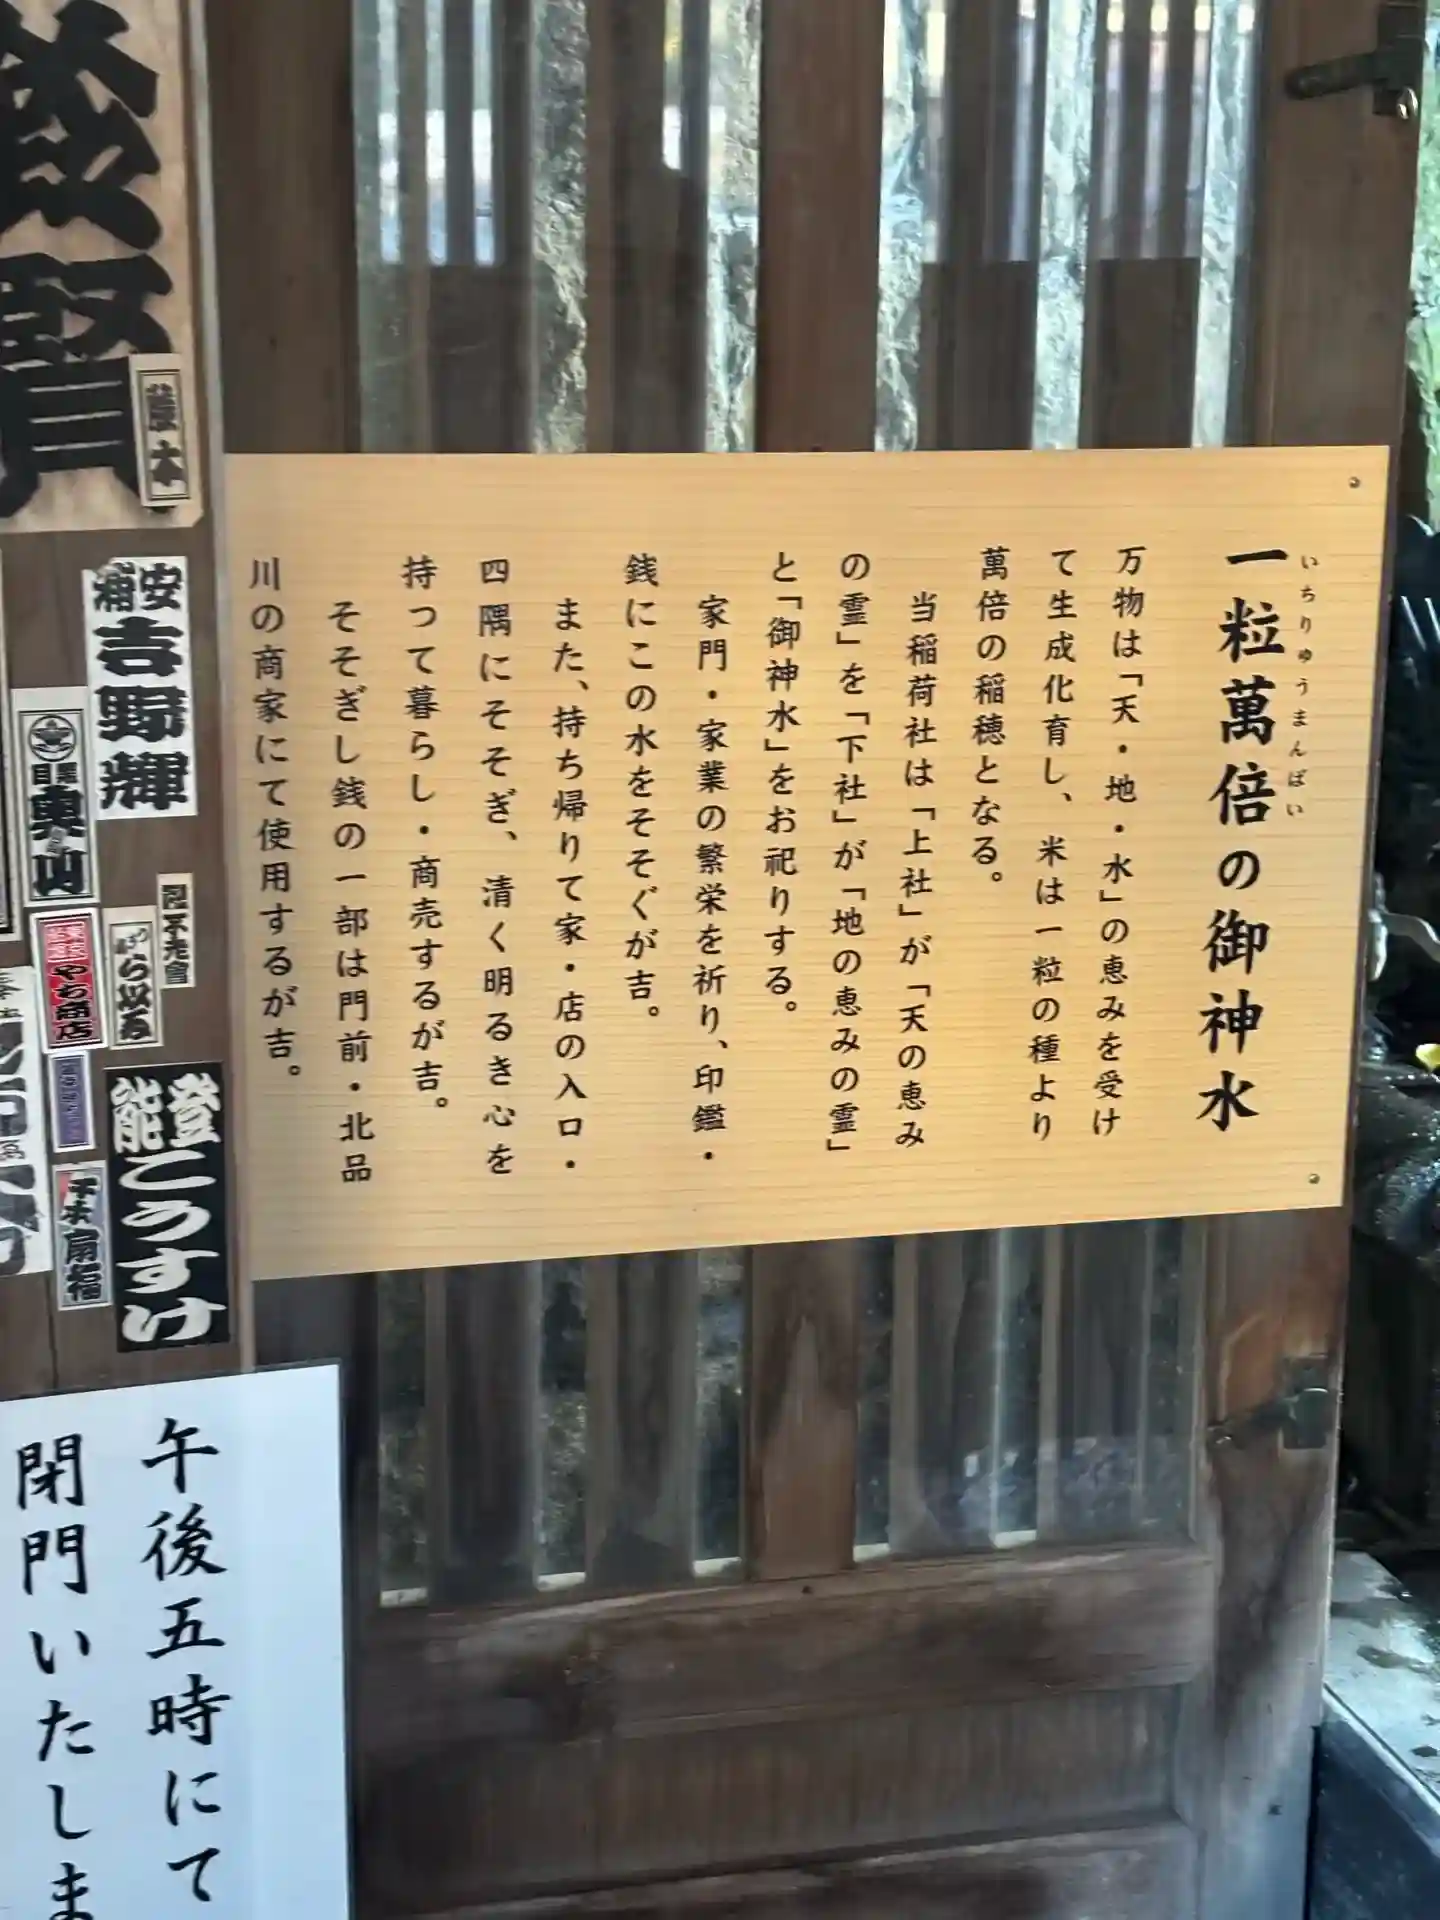 一粒萬倍の御神水
いちりゅうまんばい
万物は「天・地・水」の恵みを受け
て生成化育し、米は一粒の種より
萬倍の稲穂となる。
当稲荷社は「上社」が「天の恵み
の霊」を「下社」が「地の恵みの霊」
と「御神水」をお祀りする。
家門・家業の繁栄を祈り、印鑑・
銭にこの水をそそぐが吉。
また、持ち帰りて家・店の入口・
四隅にそそぎ、清く明るき心を
持つて暮らし・商売するが吉。
そそぎし銭の一部は門前・北品
川の商家にて使用するが吉。
浦安
吉野輝
やち商店
能登
こうすけ
午後五時にて
閉門いたしま